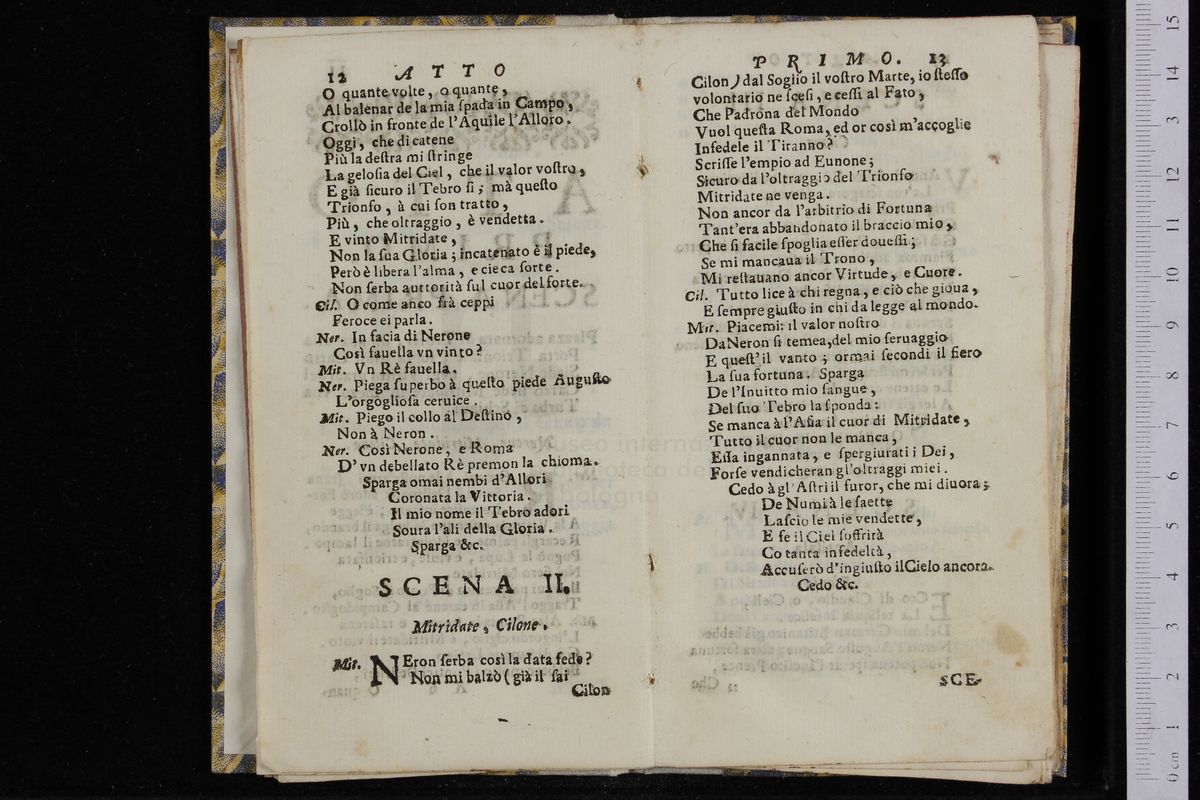 12 ATTO
O quante volte, o quante,
Al balenar de la mia ſpada in Campo,
Crollò in fronte de l'Aquile l'Alloro.
Oggi, che di catene
Più la deſtra mi ſtringe
La geloſia del Ciel, che il valor voſtro,
E già ſicuro il Tebro ſi; mà queſto
Trionfo, à cui ſon tratto,
Più, che oltraggio, è vendetta.
E vinto Mitridate,
Non la ſua Gloria; incatenato è il piede,
Però è libera l'alma, e cieca ſorte.
Non ſerba auttorità ſul cuor del forte.
Cil. O come anco frà ceppi
Feroce ei parla.
Ner. In facia di Nerone
Così fauella vn vinto?
Mit. Vn Rè fauella.
Ner. Piega ſuperbo à queſto piede Auguſto
L'orgoglioſa ceruice.
Mit. Piego il collo al Deſtino,
Non à Neron.
Ner. Così Nerone, e Roma
D'vn debellato Rè premon la chioma.
Sparga omai nembi d'Allori
Coronata la Vittoria.
Il mio nome il Tebro adori
Soura l'ali della Gloria.
Sparga &c.
SCENA II.
Mitridate, Cilone.
Mit. NEron ſerba così la data fede?
Non mi balzò (già il ſai
Cilon
PRIMO. 13
Cilon) dal Soglio il voſtro Marte, io ſteſſo
volontario ne ſceſi, e ceſſi al Fato,
Che Padrona del Mondo
Vuol queſta Roma, ed or così m'accoglie
Infedele il Tiranno?
Scriſſe l'empio ad Eunone;
Sicuro da l'oltraggio del Trionfo
Mitridate ne venga.
Non ancor da l'arbitrio di Fortuna
Tant'era abbandonato il braccio mio,
Che ſi facile ſpoglia eſſer doueſſi;
Se mi mancaua il Trono,
Mi reſtauano ancor Virtude, e Cuore.
Cil. Tutto lice à chi regna, e ciò che gioua,
E ſempre giuſto in chi da legge al mondo.
Mit. Piacemi: il valor noſtro
Da Neron ſi temea, del mio ſeruaggio
E queſt'il vanto; ormai ſecondi il fiero
La ſua fortuna. Sparga
De l'Inuitto mio ſangue,
Del ſuo Tebro la ſponda:
Se manca à l'Aſia il cuor di Mitridate,
Tutto il cuor non le manca,
Eſſa ingannata, e ſpergiurati i Dei,
Forſe vendicheran gl'oltraggi miei.
Cedo àgl'Aſtri il furor, che mi diuora;
De Numi à le ſaette
Laſcio le mie vendette,
E ſe il Ciel ſoffrirà
Co tanta infedeltà,
Accuſerò d'ingiuſto il Cielo ancora.
Cedo &c.
SCE-